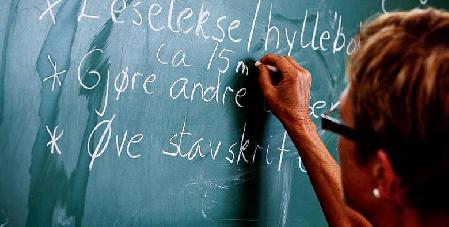 * Leselekse/hyllebo
ca 15m
* Gjøre andre
* Øve stavskrift